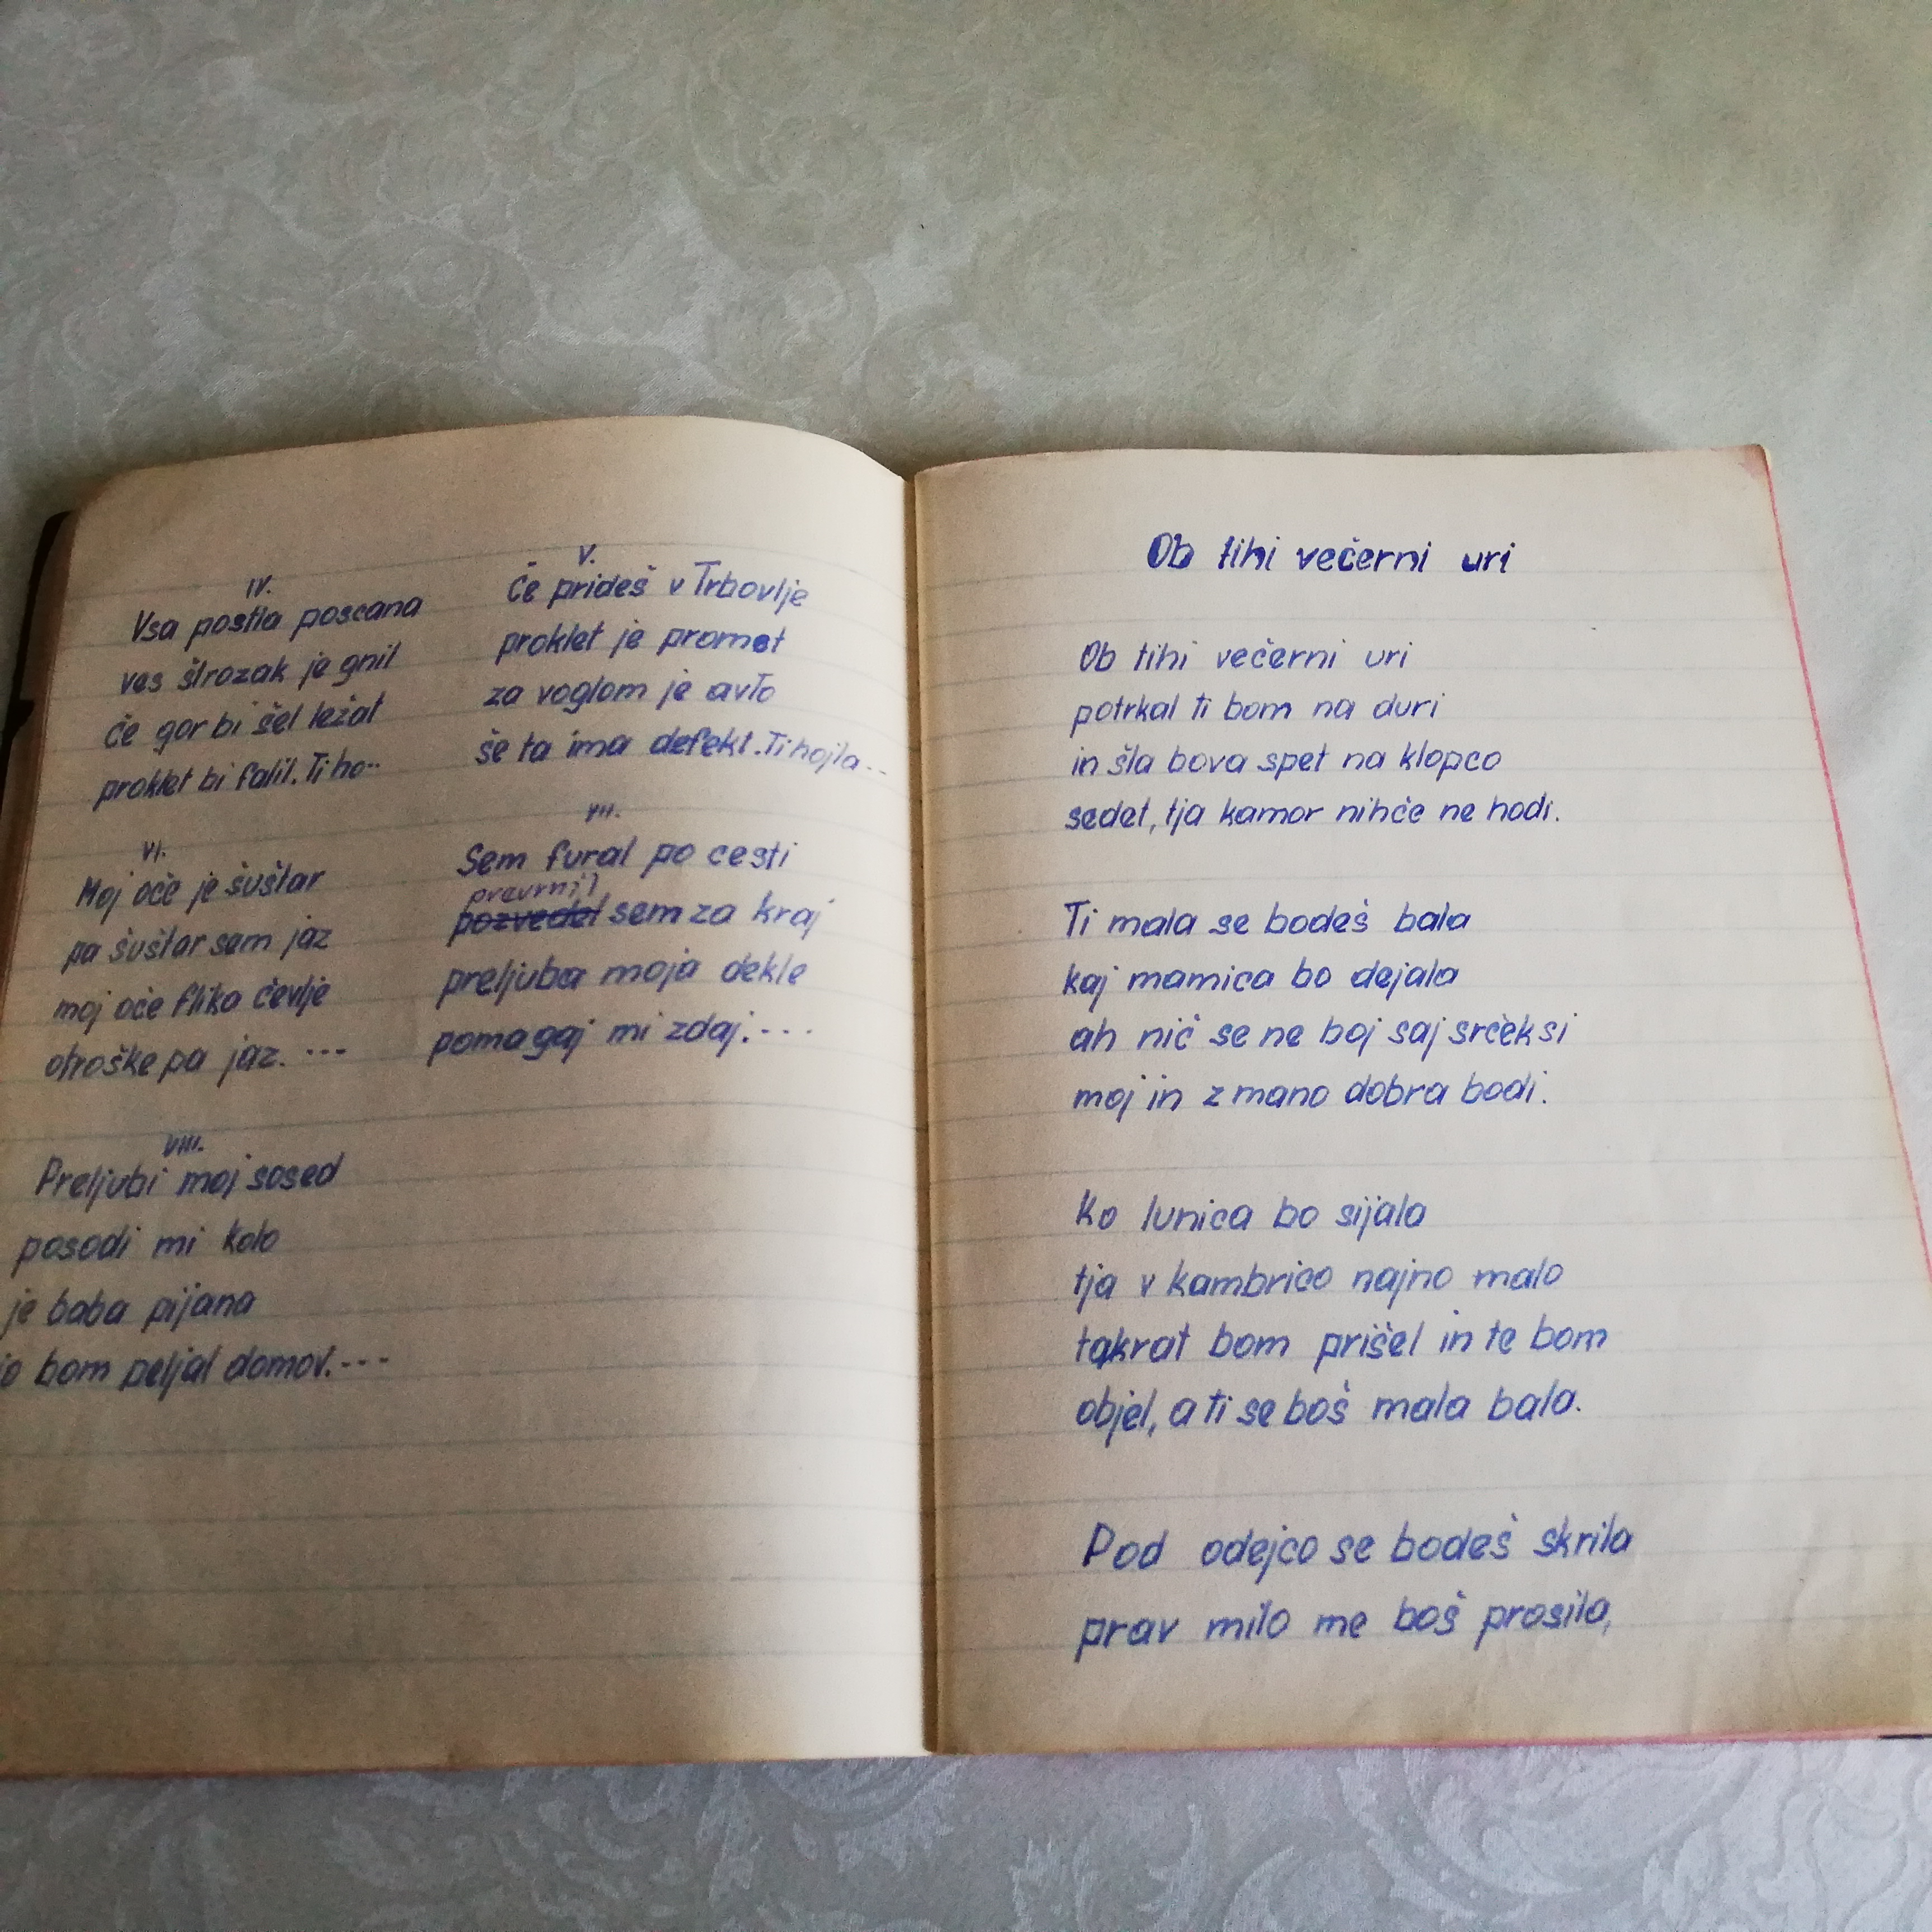 IV.
Vsa postla poscana
ves štrozak je gnil
če gor bi šel ležat
proklet bi falil. Ti ho--
V.
Če prideš v Trbovlje
proklet je promet
za voglom je avto
še ta ima defekt. Ti hojla--
VI.
Moj oče je šuštar
pa šuštar sem jaz
moj oče flika čevlje
otroške pa jaz. ---
VII.
Sem fural po cesti
prevrnil
pozvedel sem za kraj
preljuba moja dekle
pomagaj mi zdaj. ---
VIII.
Preljubi moj sosed
posodi mi kolo
je baba pijana
jo bom peljal domov. ---
Ob tihi večerni uri
Ob tihi večerni uri
potrkal ti bom na duri
in šla bova spet na klopco
sedet, tja kamor nihče ne hodi.
Ti mala se bodeš bala
kaj mamica bo dejala
ah nič se ne boj saj srček si
moj in z mano dobra bodi.
Ko lunica bo sijala
tja v kambrico najno malo
takrat bom prišel in te bom
objel, a ti se boš mala bala.
Pod odejco se bodeš skrila
prav milo me boš prosila,